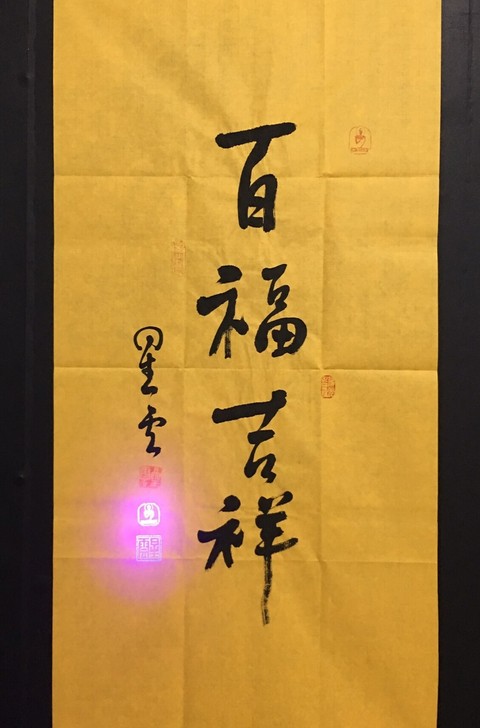 百福吉祥
星雲